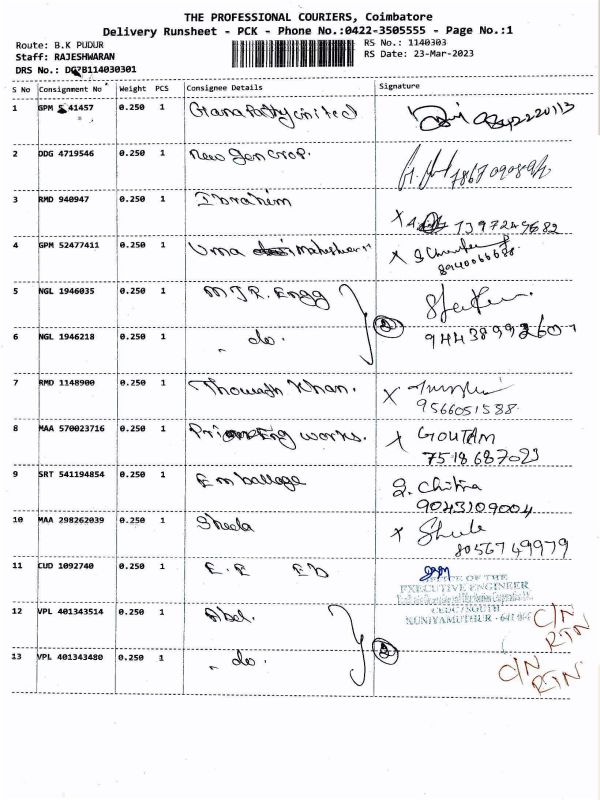 THE PROFESSIONAL COURIERS, Coimbatore
Delivery Runsheet - PCK - Phone No.:0422-3505555 - Page No.:1
Route: B.K PUDUR
RS No.: 1140303
Staff: RAJESHWARAN
RS Date: 23-Mar-2023
DRS No.: B114030301
S No Consignment No Weight PCS Consignee Details Signature
1 GPM 41457 0.250 1
2 DDG 4719546 0.250 1 new gen crop.
3 RMD 940947 0.250 1 Ibrahim
4 GPM 52477411 0.250 1 Uma Maheshwari
8940066688
5 NGL 1946035 0.250 1 M J R. Engg
2
6 NGL 1946218 0.250 1 " do.
7 RMD 1148900 0.250 1 Khan. X
9566051588
8 MAA 570023716 0.250 1 Eng works. X GOUTAM
7518687023
9 SRT 541194854 0.250 1 Emballage S. Chitra
9043109004
10 MAA 298262039 0.250 1 Sheela X
8056749979
11 CUD 1092740 0.250 1 E.E ED
OF THE
EXECUTIVE ENGINEER
CEDC/SOUTH
KUNIYAMUTHUR - 641
12 VPL 401343514 0.250 1 Abel. C/N
RTN
2
13 VPL 401343480 0.250 1 " do. C/N
RTN